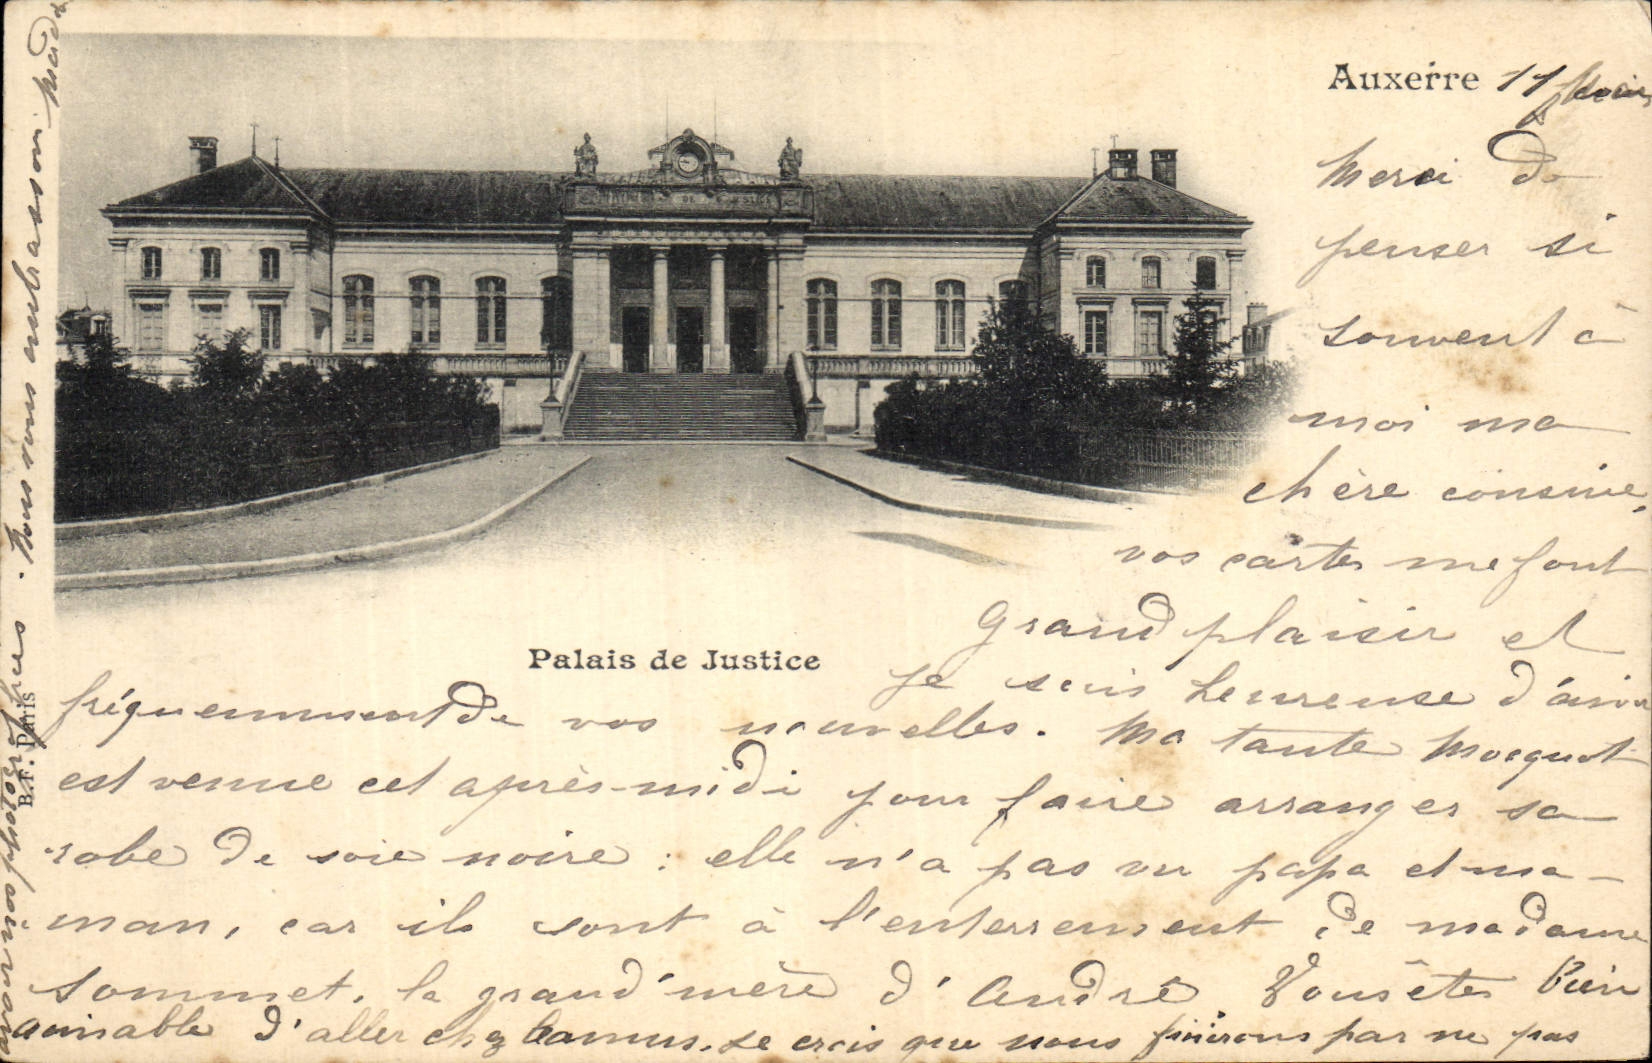 Auxerre 11 février
Merci de
penser si
souvent à
moi ma
chère cousine,
vos cartes me font
grand plaisir et
Palais de Justice
je suis heureuse d'avoir
fréquemment de vos nouvelles. Ma tante Mocquot
est venue cet après-midi pour faire arranger sa
robe de soie noire : elle n'a pas vu papa et ma-
man, car ils sont à l'enterrement de madame
Sommet, la grand'mère d'André. Vous êtes bien
aimable d'aller chez Camus. Je crois que nous finirons par ne pas
avoir nos photographies. Nous vous embrassons
B.F. Paris